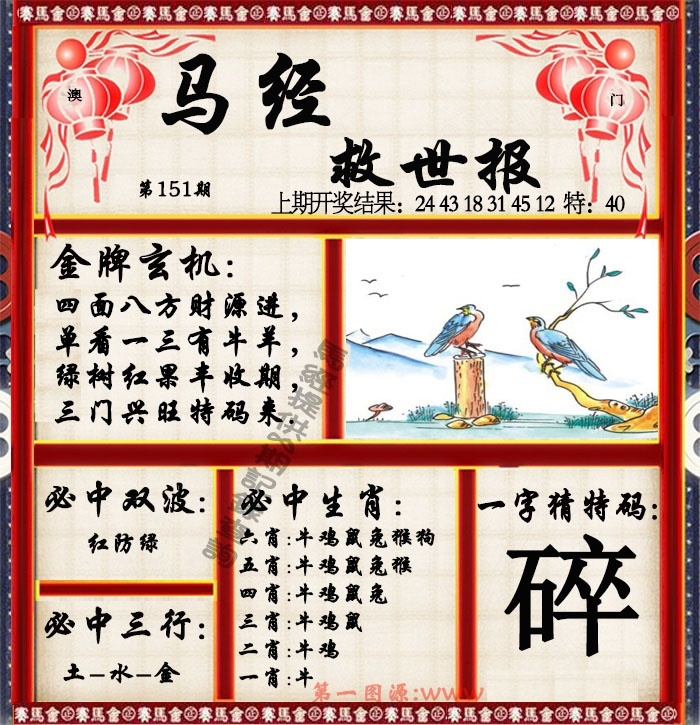 賽馬會金賽馬會金賽馬會金賽馬會金賽馬會金
澳
门
马经
救世报
第151期
上期开奖结果：24 43 18 31 45 12 特：40
金牌玄机：
四面八方财源进，
单看一三有牛羊，
绿树红果丰收期，
三门兴旺特码来.
必中双波：
红防绿
必中三行：
土-水-金
必中生肖：
六肖:牛鸡鼠兔猴狗
五肖:牛鸡鼠兔猴
四肖:牛鸡鼠兔
三肖:牛鸡鼠
二肖:牛鸡
一肖:牛
一字猜特码：
碎
第一图源:www